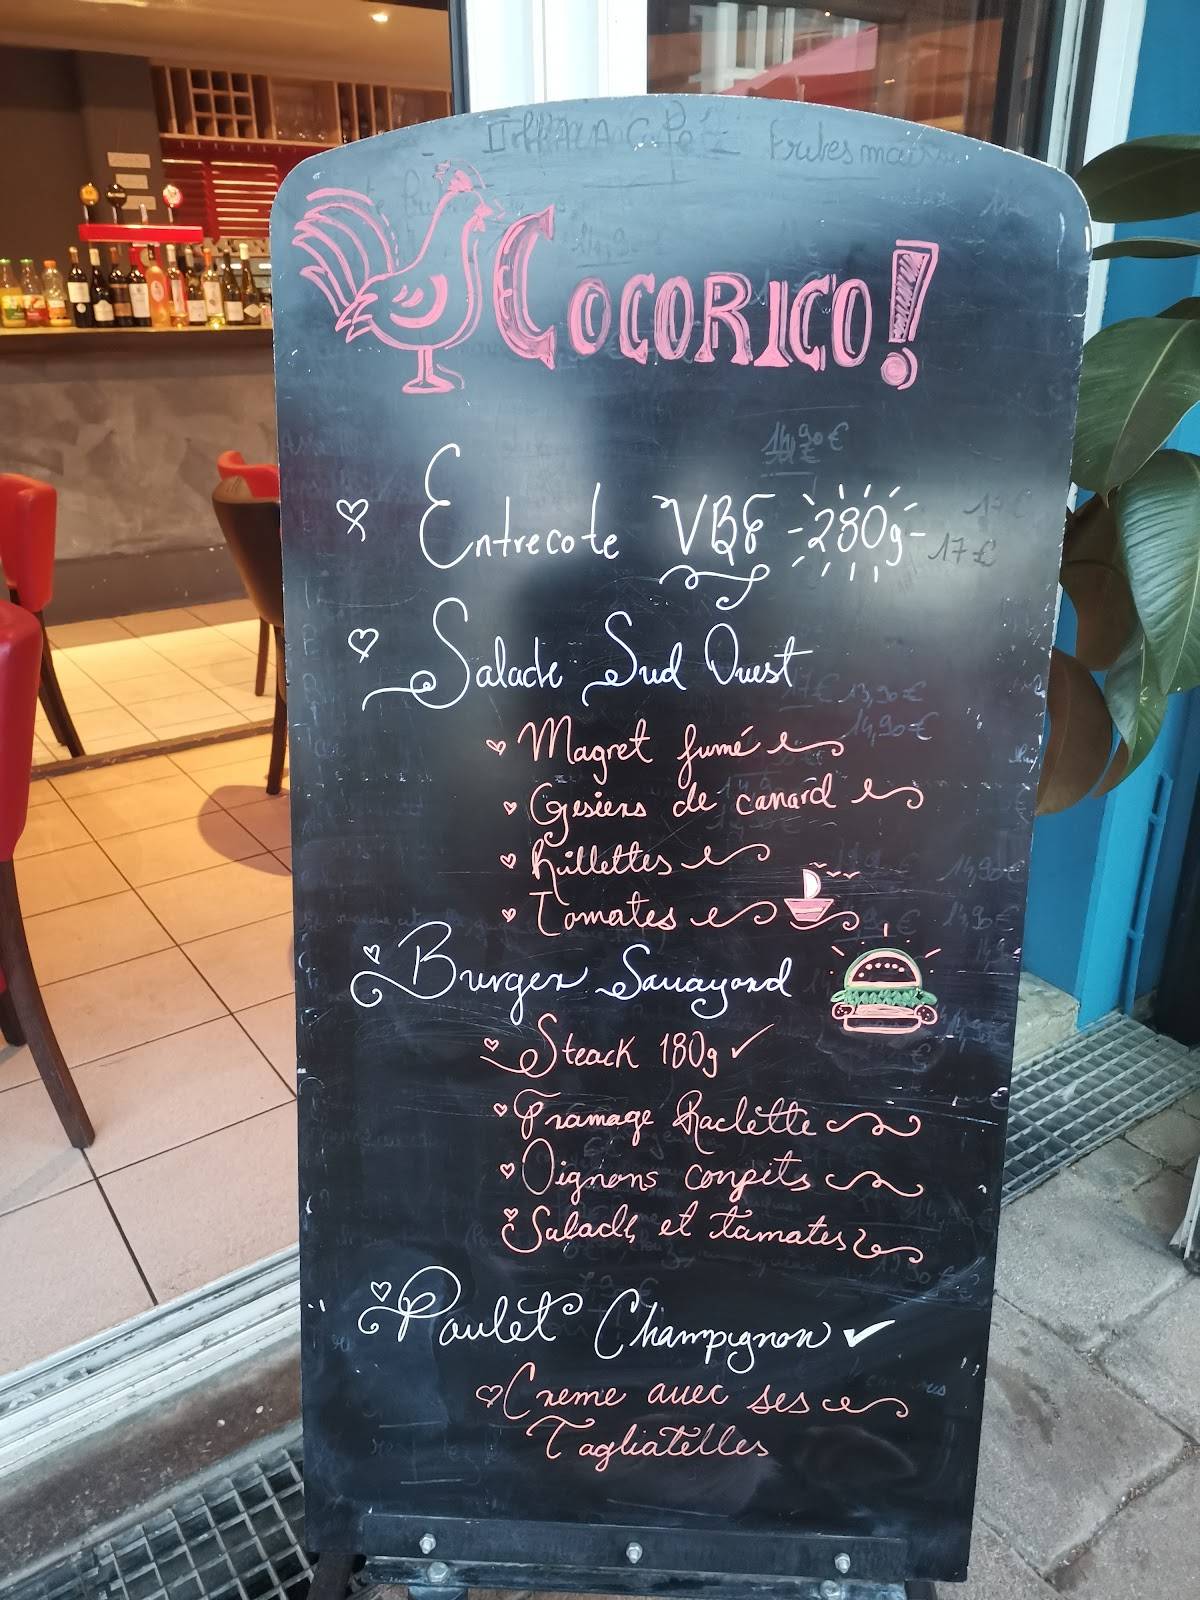 COCORICO!
Entrecote VBF 280g
Salade Sud Ouest
Magret fumé
Gesiers de canard
Rillettes
Tomates
Burger Savayard
Steack 180g
Framage Raclette
Oignons confits
Salade et tamates
Poulet Champignon
Creme avec ses
Tagliatelles
14,90€
17€
17€
17€ 13,90€
14,90€
14,90€
14,90€